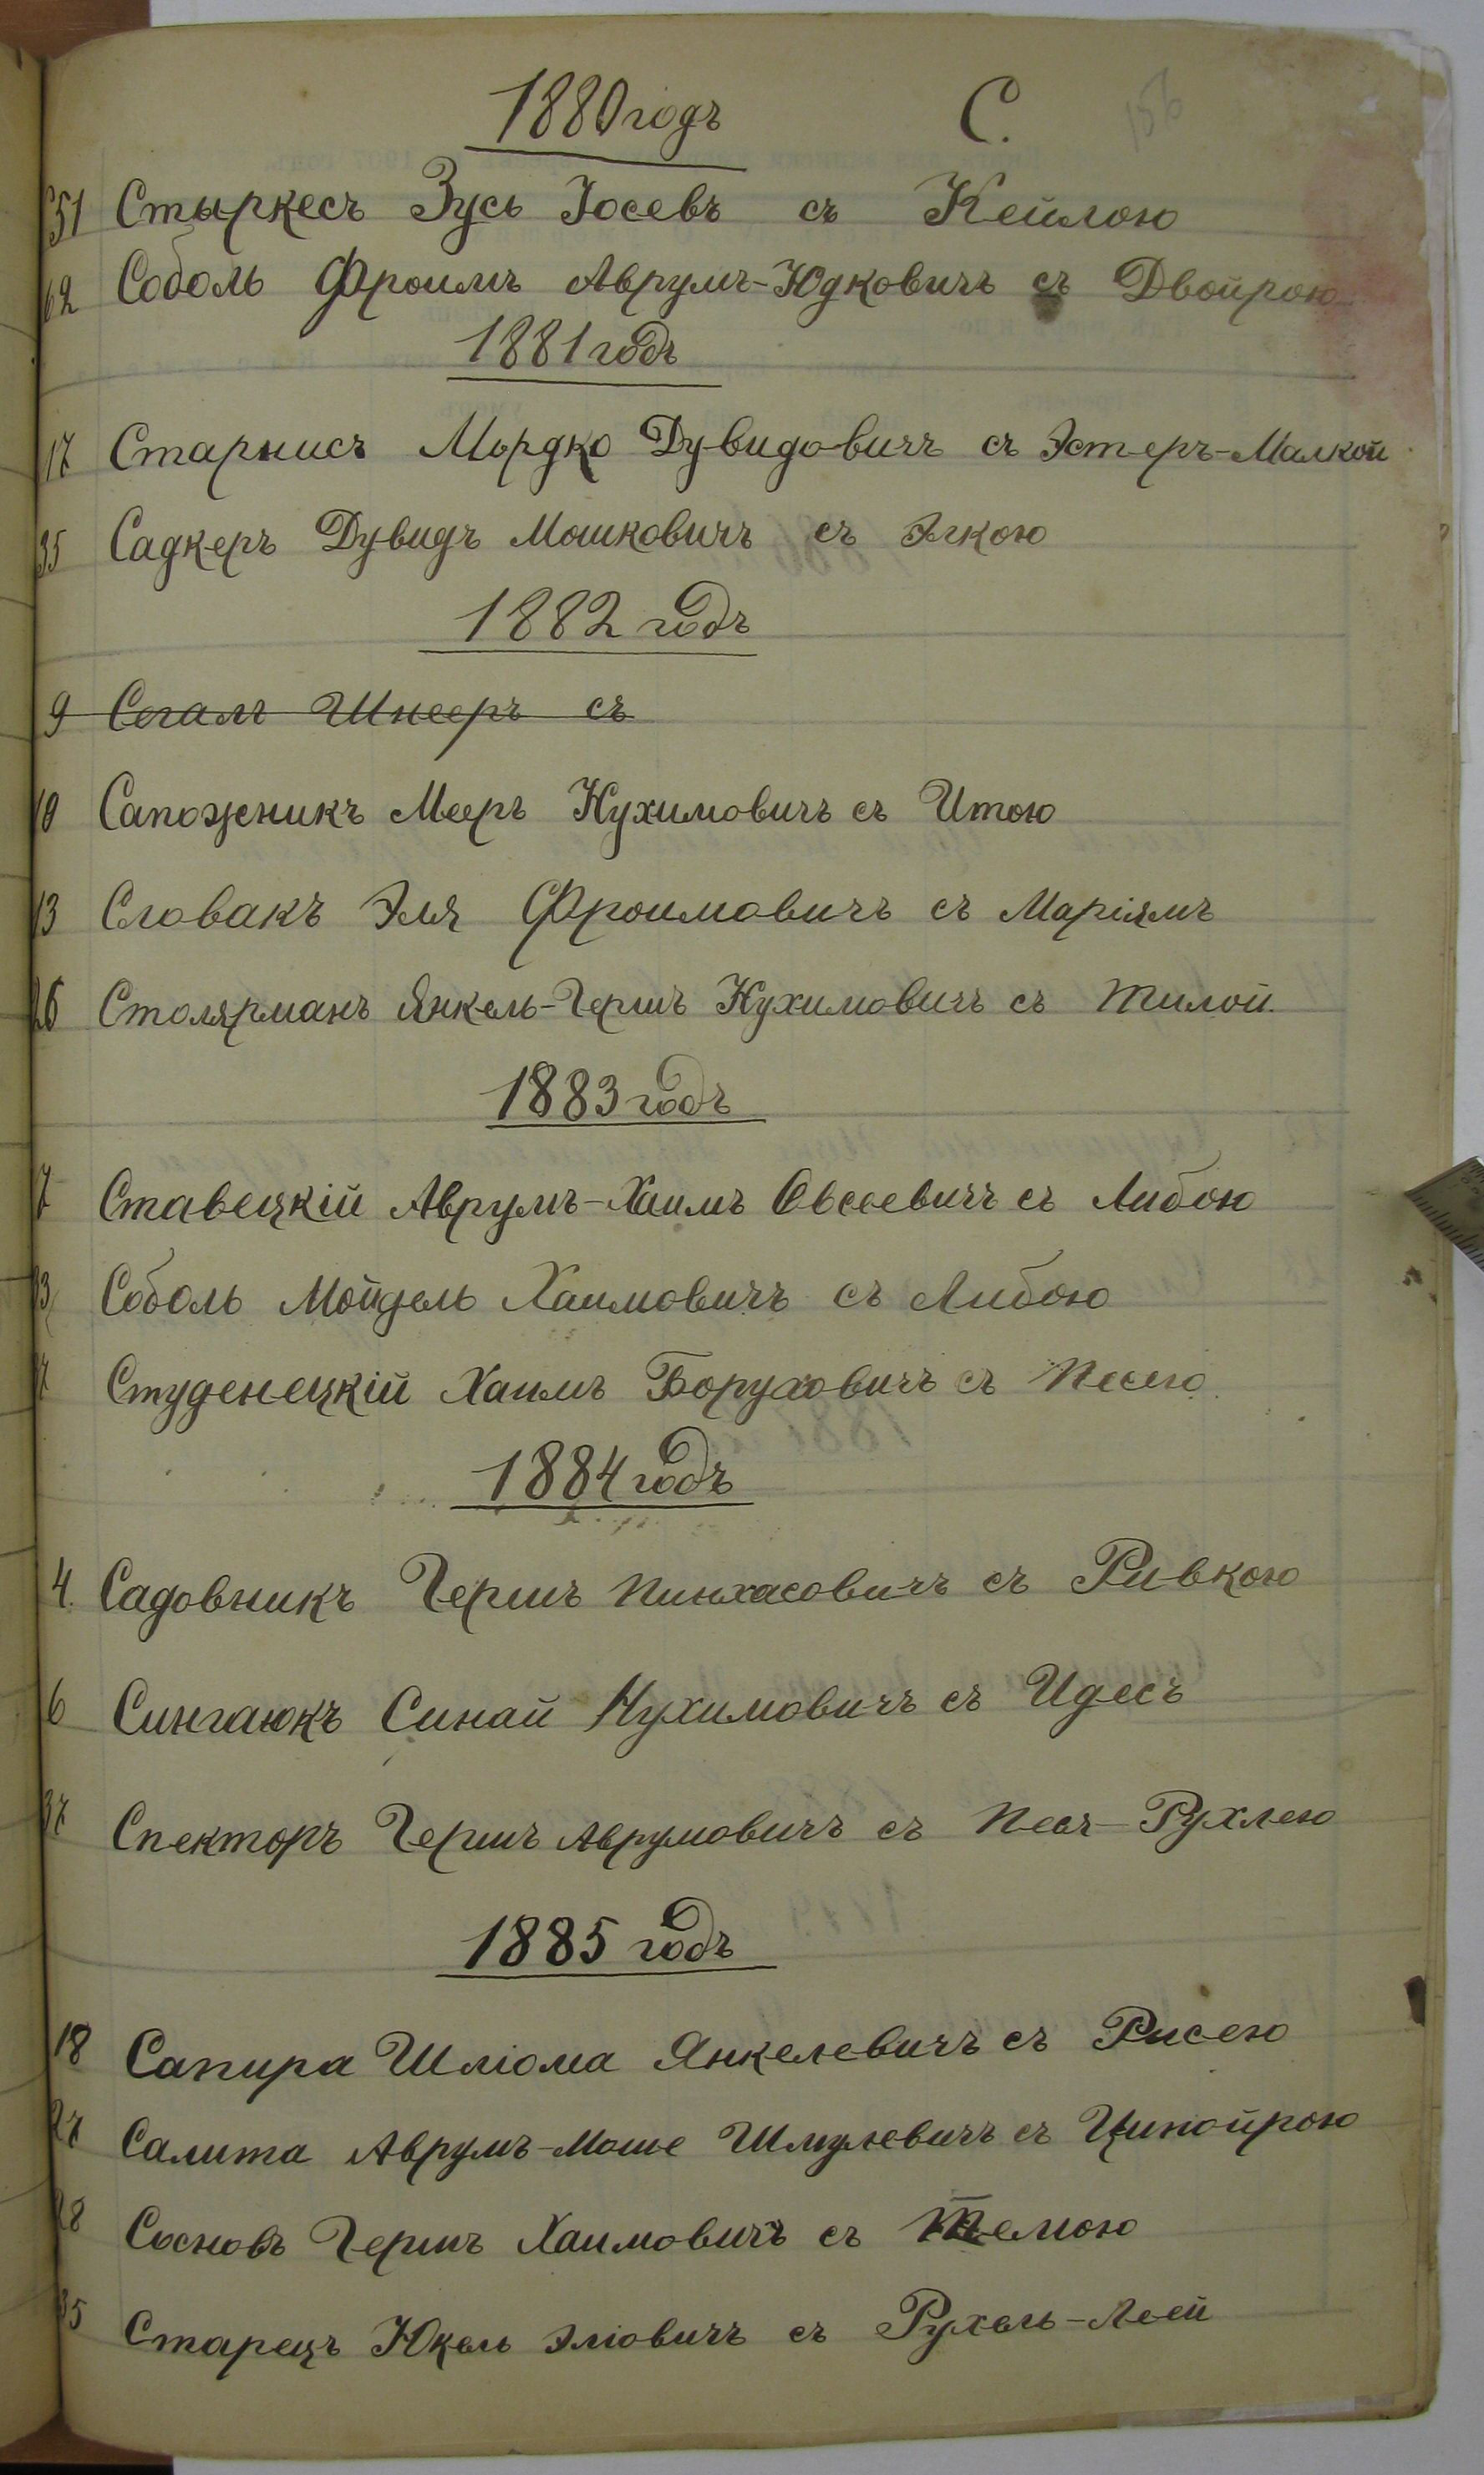 1880 годъ С.
51 Стыркесъ Зусь Іосевъ съ Кейлою
62 Соболь Фроимъ Аврумъ-Юдковичъ съ Двойрою
1881 годъ
17 Старнисъ Мордко Дувидовичъ съ Эстеръ-Малкой
35 Садкеръ Дувидъ Мошковичъ съ Элкою
1882 годъ
9 Сегалъ Шнееръ съ
10 Сапожникъ Мееръ Нухимовичъ съ Итою
13 Словакъ Эля Фроимовичъ съ Маріямъ
26 Столярманъ Янкель-Гершъ Нухимовичъ съ Тилой.
1883 годъ
7 Ставецкій Аврумъ-Хаимъ Овсеевичъ съ Либою
Соболь Мойдель Хаимовичъ съ Либою
Студенецкій Хаимъ Боруховичъ съ Песею
1884 годъ
4. Садовникъ Гершъ Пинхасовичъ съ Ривкою
6 Сингаюкъ Синай Нухимовичъ съ Идесъ
37 Спекторъ Гершъ Аврумовичъ съ Песя-Рухлею
1885 годъ
18 Сапира Шліома Янкелевичъ съ Рисею
27 Салита Аврумъ-Моше Шмулевичъ съ Ципойрою
28 Сосновъ Гершъ Хаимовичъ съ Темою
35 Старецъ Юкель Эліовичъ съ Рухель-Леей